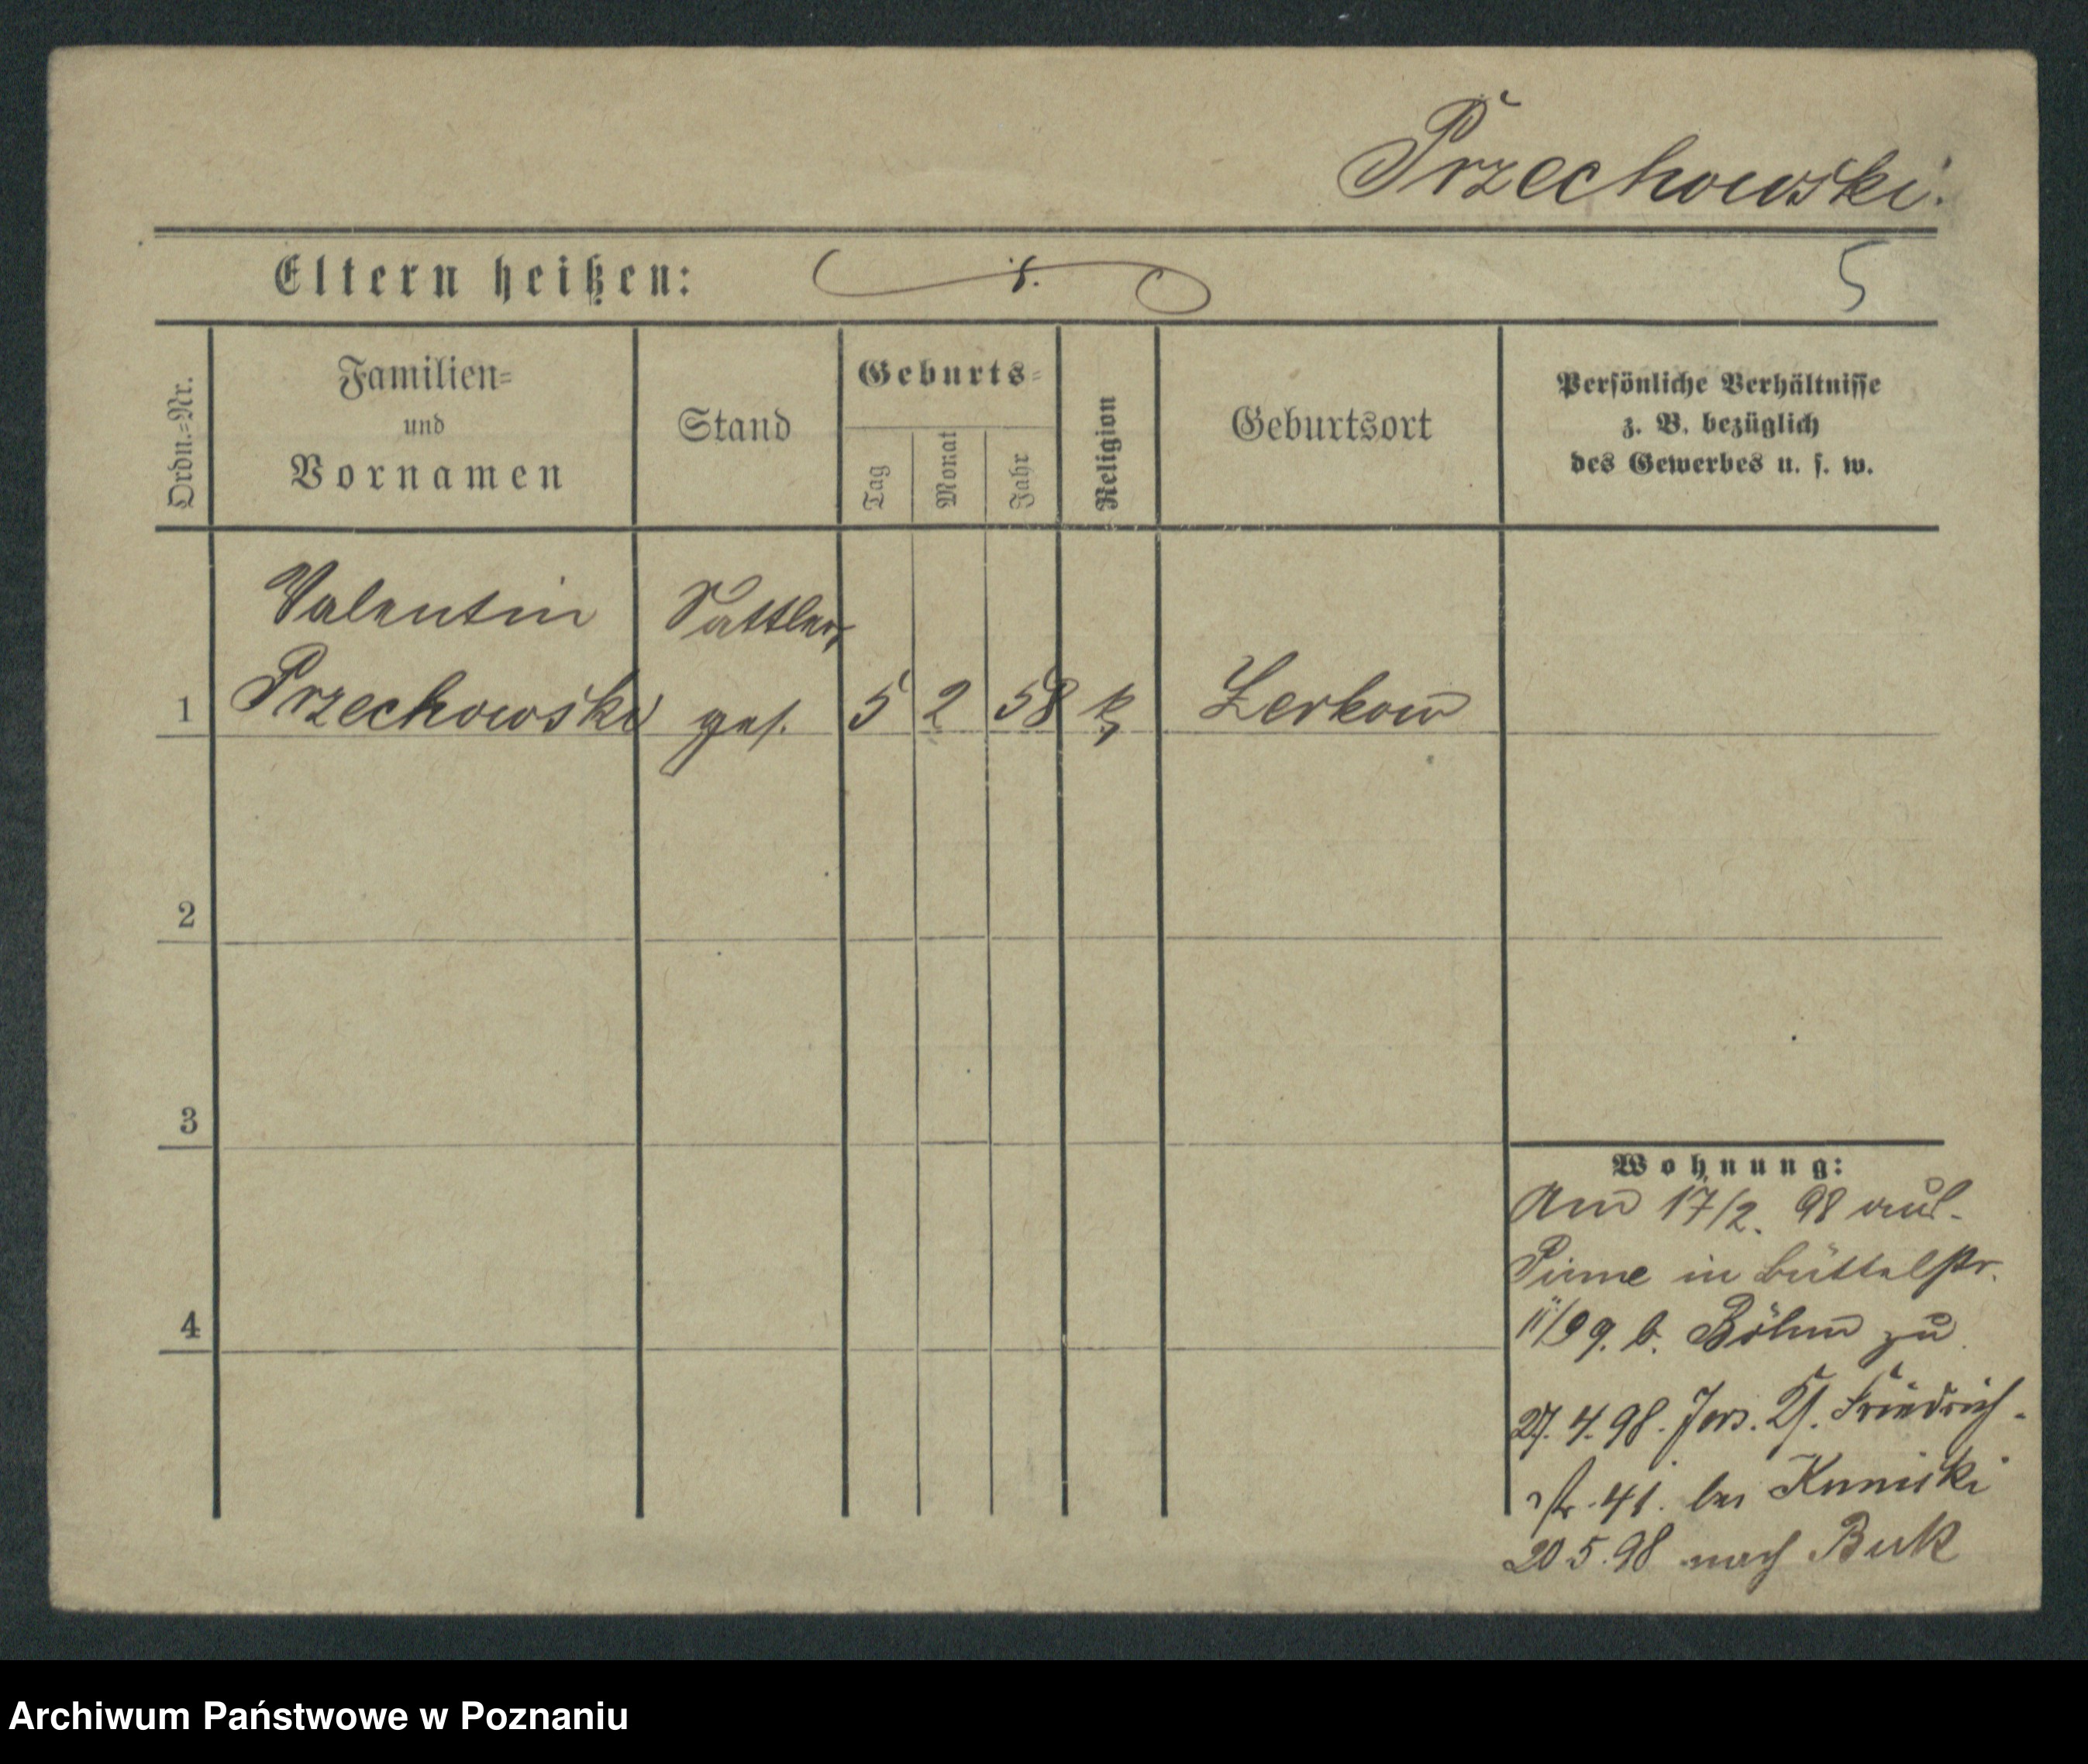 Przechowski.
Eltern heißen:
5
Ordn.=Nr.
Familien=
und
Vornamen
Stand
Geburts=
Tag
Monat
Jahr
Religion
Geburtsort
Persönliche Verhältnisse
z. B. bezüglich
des Gewerbes u. s. w.
Valentin
Sattler
1 Przechowski ges. 5 2 58 k Zerkow
2
3
4
Wohnung:
Am 17/2. 98 aus
Pinne in Büttelstr.
b. Böhm zu
27. 4. 98. Jers. Friedrich-
str. 41. bei
20 5. 98 nach Buk
Archiwum Państwowe w Poznaniu